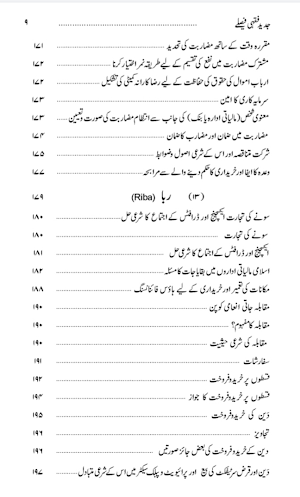 جدید فقہی فیصلے ۹
مقررہ وقت کے ساتھ مضاربت کی تحدید ۱۷۱
مشترک مضاربت میں نفع کی تقسیم کے لیے طریقہ نمر اختیار کرنا ۱۷۲
ارباب اموال کی حقوق کی حفاظت کے لیے رضاکارانہ کمیٹی کی تشکیل ۱۷۲
سرمایہ کاری کا امین ۱۷۳
معنوی شخص (مالیاتی ادارہ یا بنک) کی جانب سے انتظام مضاربت کی صورت و تعیین ۱۷۳
مضاربت میں ضمان اور مضارب کا ضمان ۱۷۴
شرکت متناقصہ اور اس کے شرعی اصول و ضوابط ۱۷۵
وعدہ کا ایفا اور خریداری کا حکم دینے والے سے مرابحہ ۱۷۷
(۱۳) ربا (Riba) ۱۷۹
سونے کی تجارت ایکسچینج اور ڈرافٹس کے اجتماع کا شرعی حل ۱۸۰
سونے کی تجارت ۱۸۰
ایکسچینج اور ڈرافٹس کے اجتماع کا شرعی حل ۱۸۱
اسلامی مالیاتی اداروں میں بقایا جات کا مسئلہ ۱۸۲
مکانات کی تعمیر اور خریداری کے لیے ہاؤس فائنانسنگ ۱۸۸
مقابلہ جاتی انعامی کوپن ۱۹۰
مقابلہ کا مفہوم؟ ۱۹۰
مقابلہ کی شرعی حیثیت ۱۹۰
سفارشات ۱۹۱
قسطوں پر خرید و فروخت ۱۹۲
قسطوں پر خرید و فروخت کا جواز ۱۹۴
دَین کی خرید و فروخت ۱۹۵
تجاویز ۱۹۶
دین کے خرید و فروخت کی بعض جائز صورتیں ۱۹۶
دَین اور قرض سرٹیفکٹ کی بیع اور پرائیویٹ و پبلک سیکٹر میں اس کے شرعی متبادل ۱۹۷